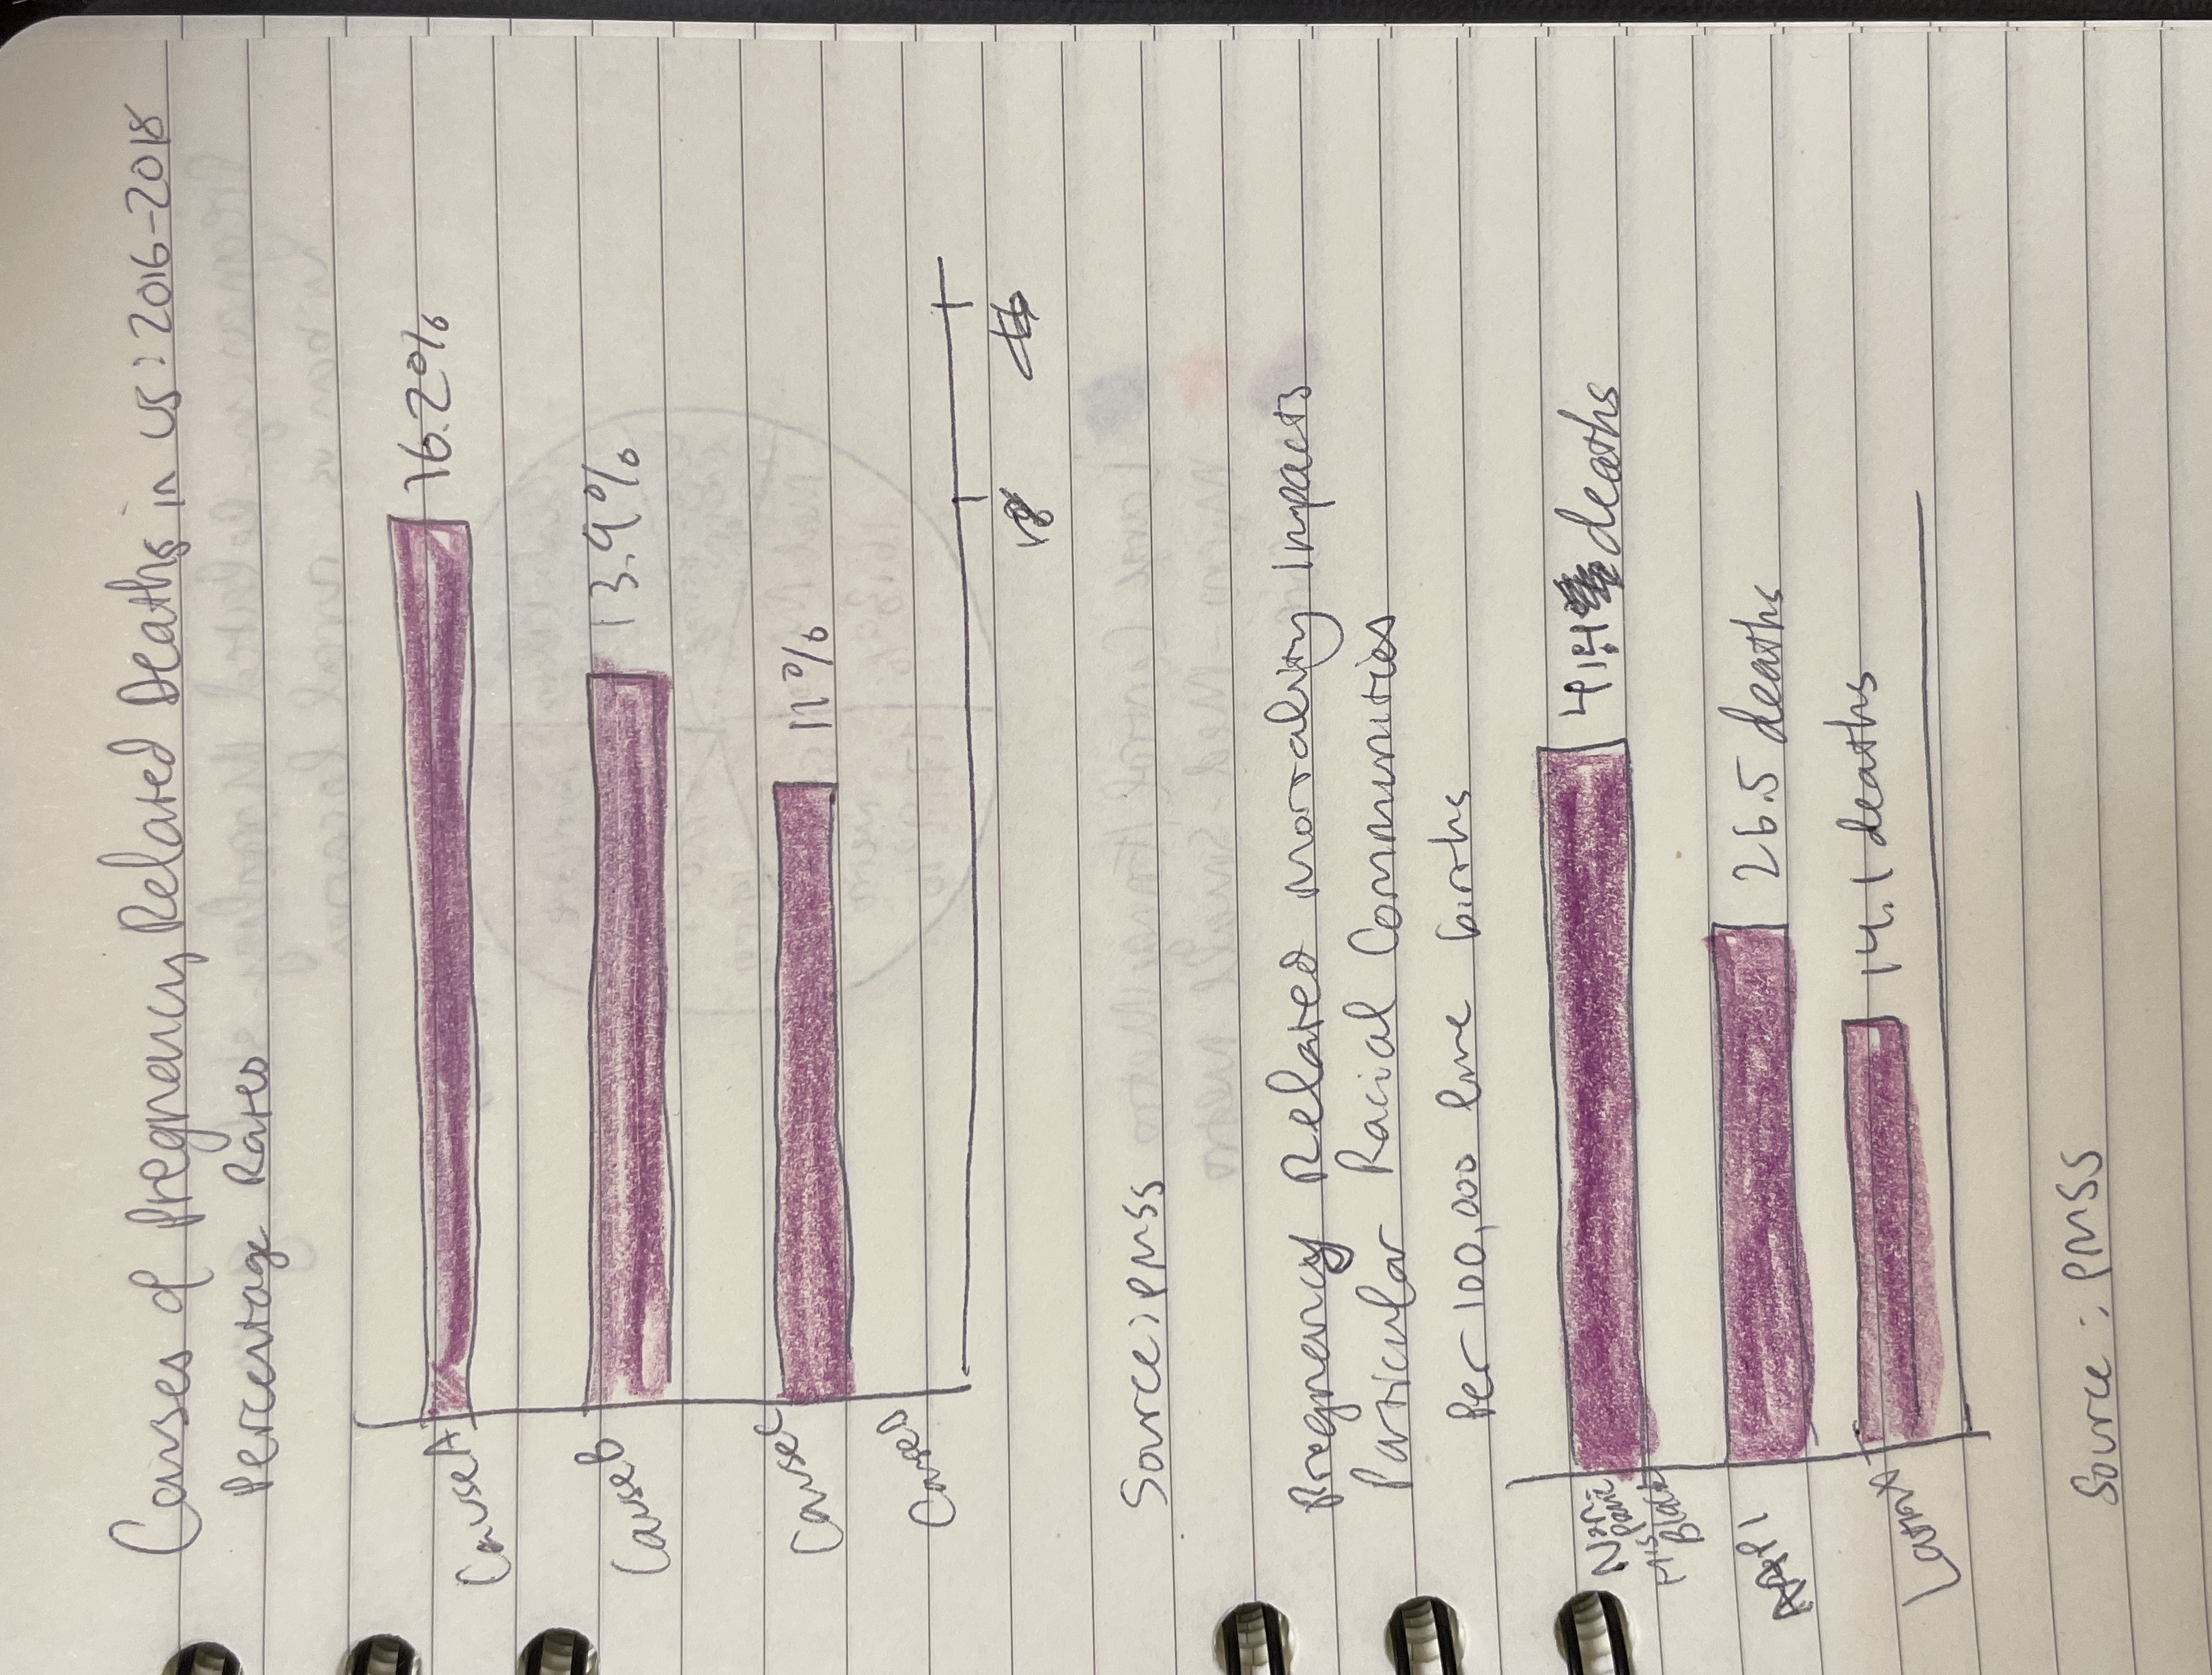 Causes of Pregnancy Related Deaths in US: 2016-2018
Percentage Rates
Cause A 16.2%
Cause B 13.9%
Cause C 11%
Cause D
Source: PMSS
Pregnancy Related Mortality Impacts
Particular Racial Communities
Per 100,000 live births
Non-
Hispanic
Black
41.4 deaths
26.5 deaths
LatinX 14.1 deaths
Source: PMSS